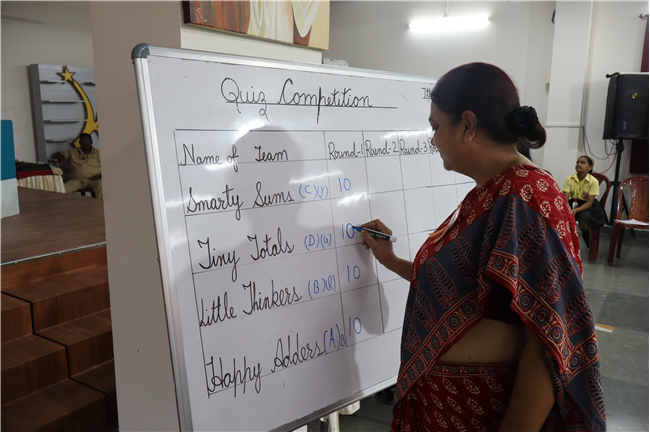 Quiz Competition
Name of Team Round-1 Round-2 Round-3
Smarty Sums (C)(Y) 10
Tiny Totals (D)(G) 10
Little Thinkers (B) 10
Happy Adders (A) 10